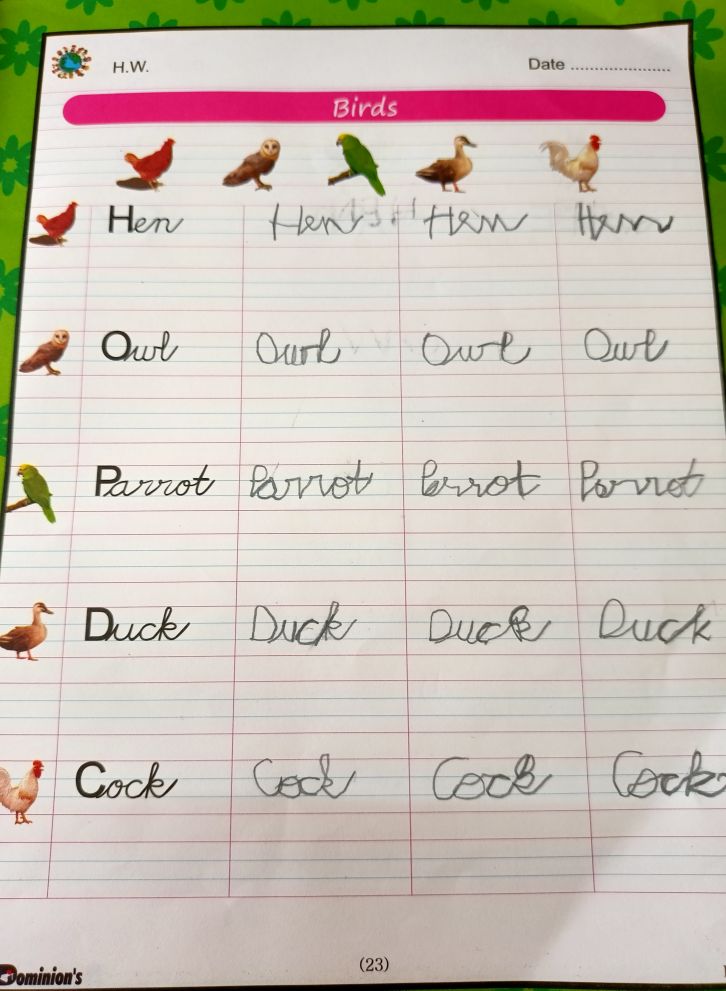 H.W.
Date ......................
Birds
Hen Hen Hen Hen
Owl Owl Owl Owl
Parrot Parrot Parrot Parrot
Duck Duck Duck Duck
Cock Cock Cock Cock
Dominion's
(23)